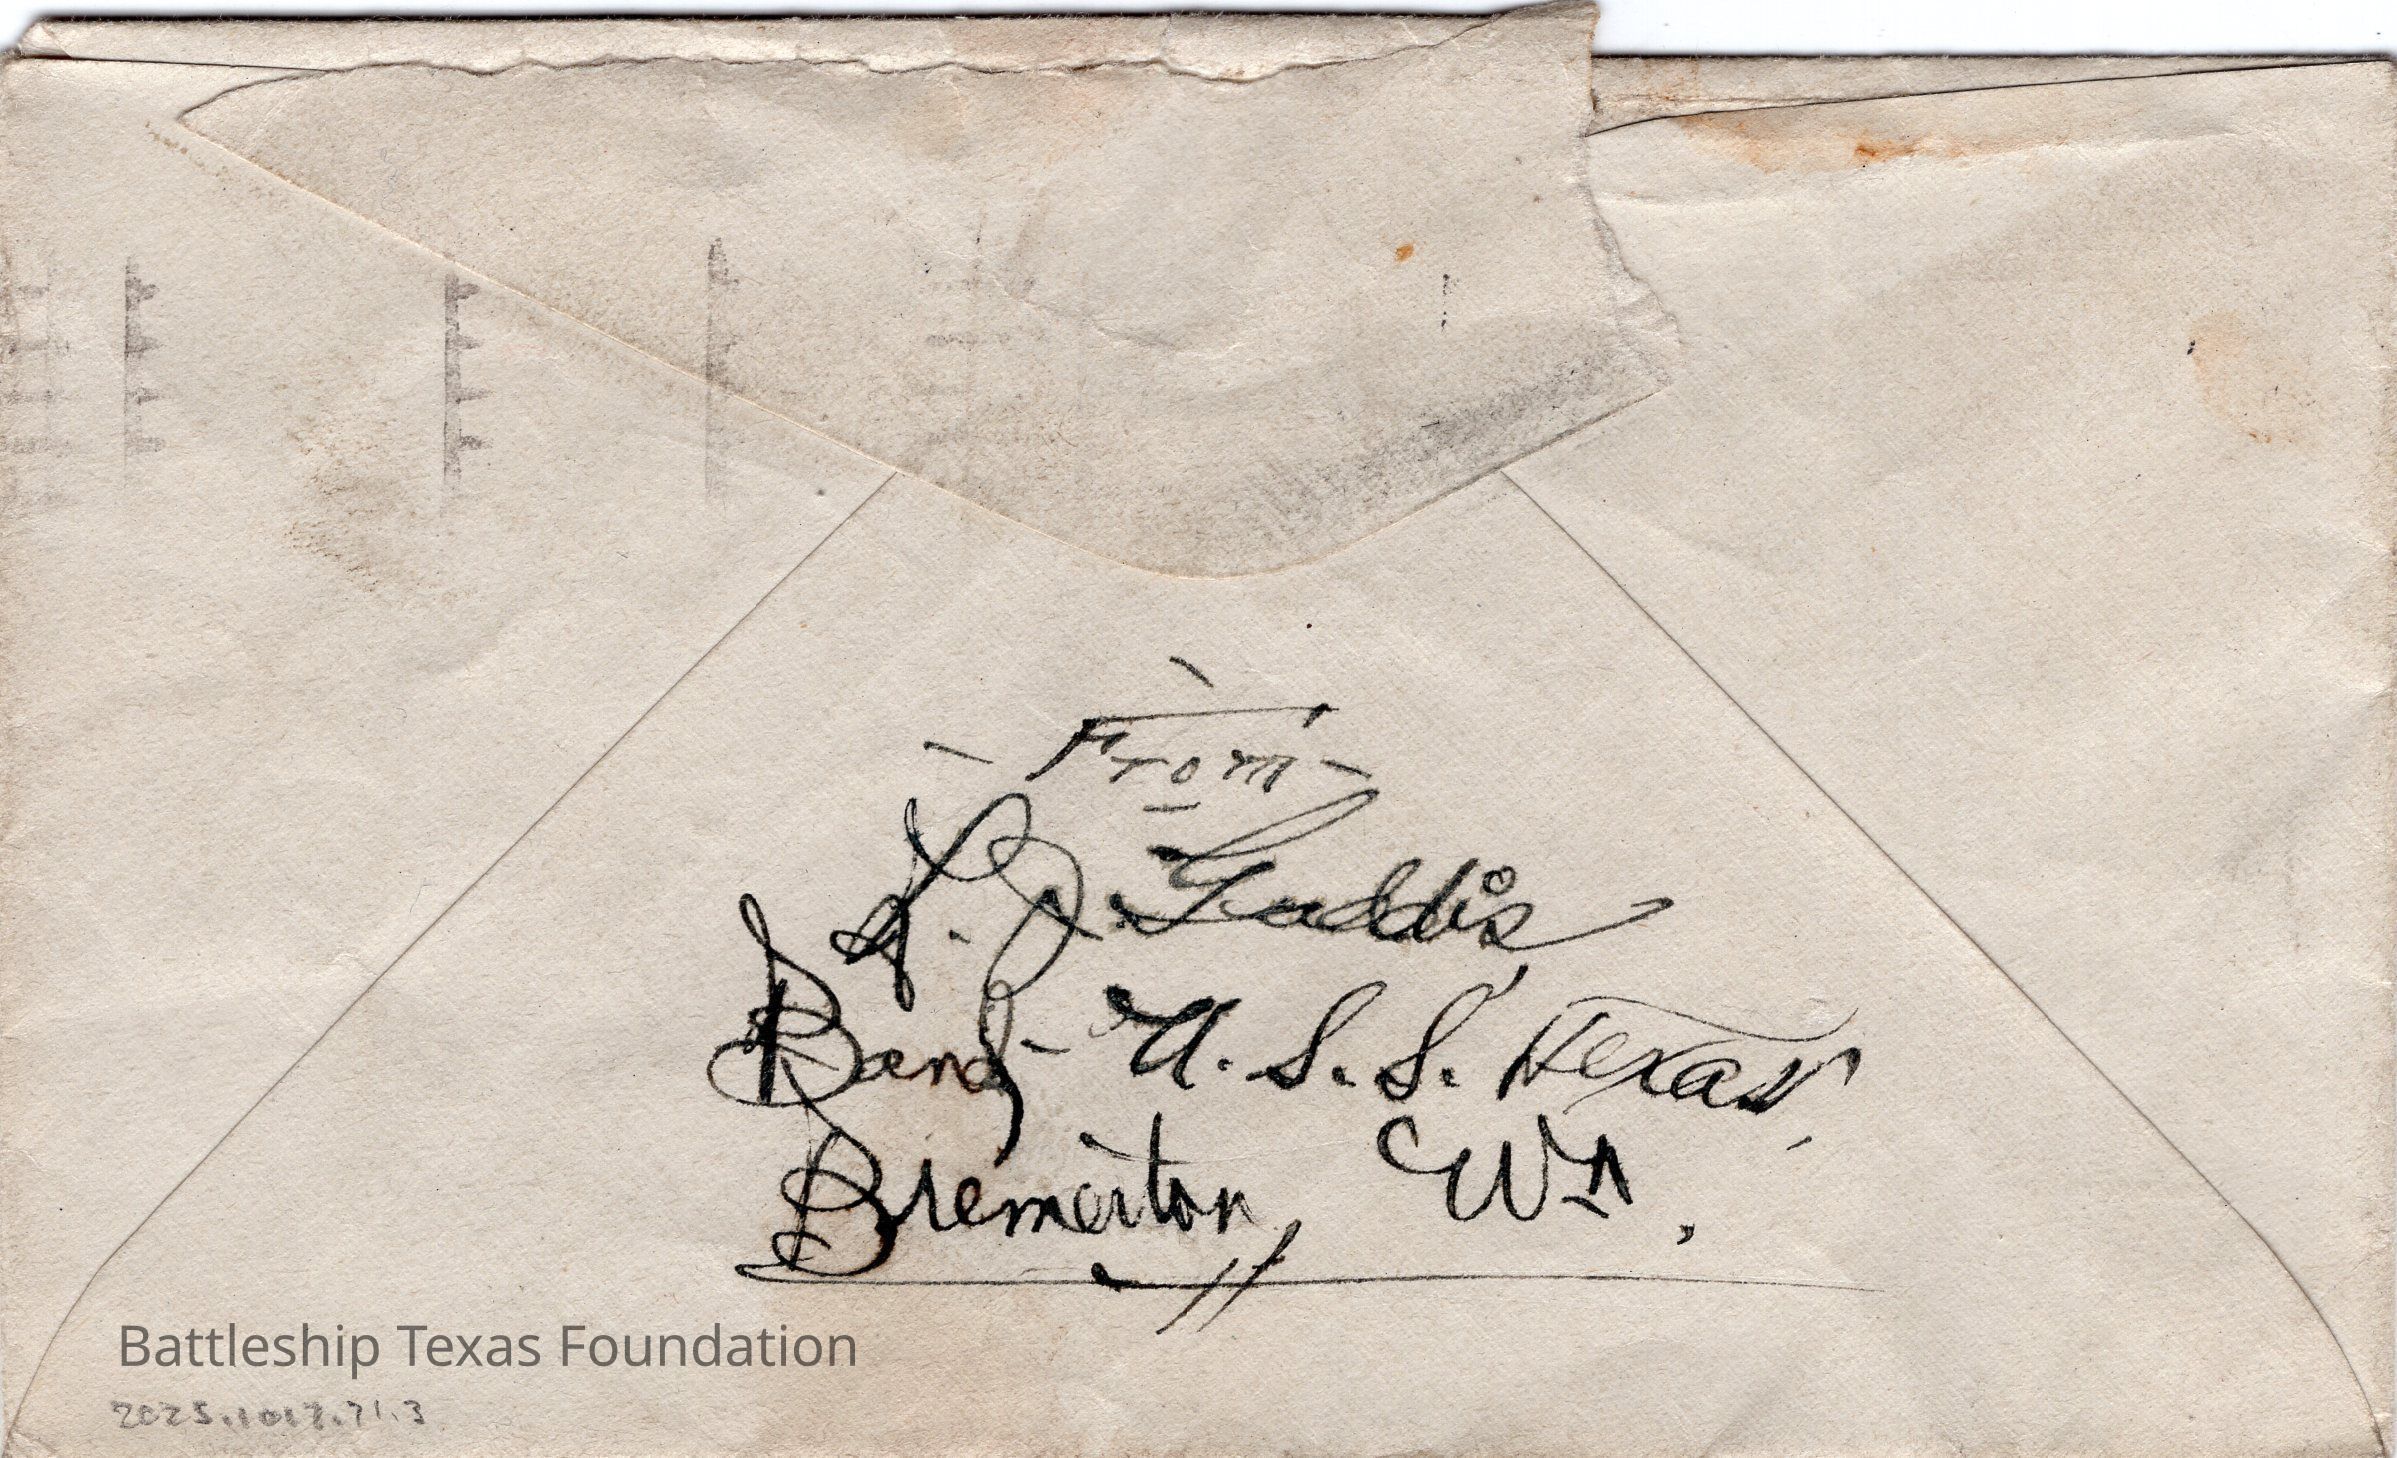 From
L. J. Gaddis,
Band - U.S.S. Texas,
Bremerton, Wn.
Battleship Texas Foundation
2025.1017.71.3